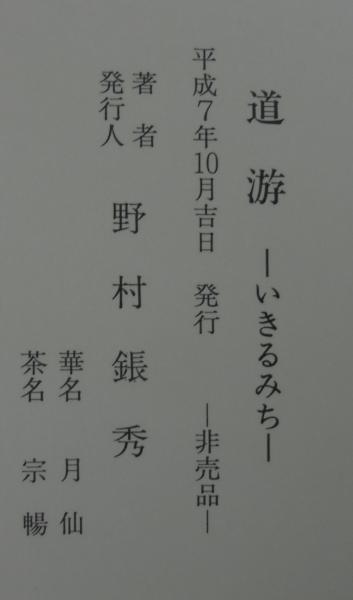 道游 ―いきるみち―
平成7年10月吉日 発行 ―非売品―
著者
発行人
野村鋹秀
華名 月仙
茶名 宗暢